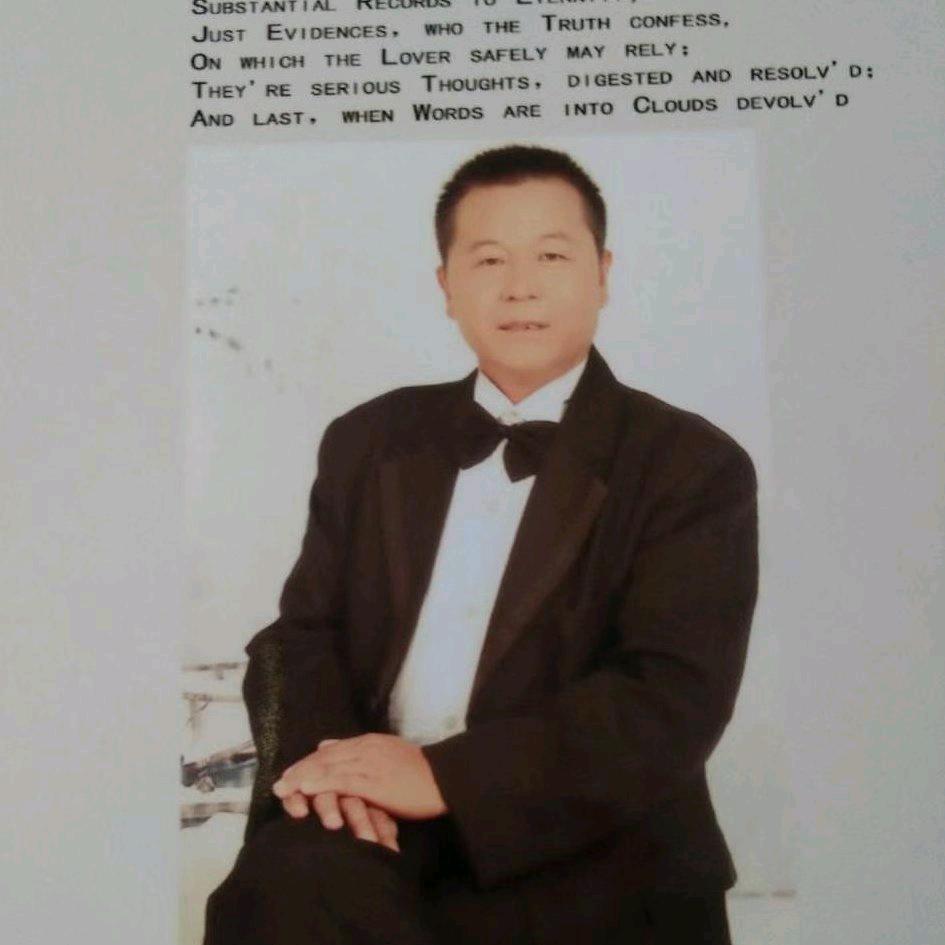 SUBSTANTIAL RECORDS TO ETERNITY,
JUST EVIDENCES, WHO THE TRUTH CONFESS,
ON WHICH THE LOVER SAFELY MAY RELY;
THEY'RE SERIOUS THOUGHTS, DIGESTED AND RESOLV'D;
AND LAST, WHEN WORDS ARE INTO CLOUDS DEVOLV'D